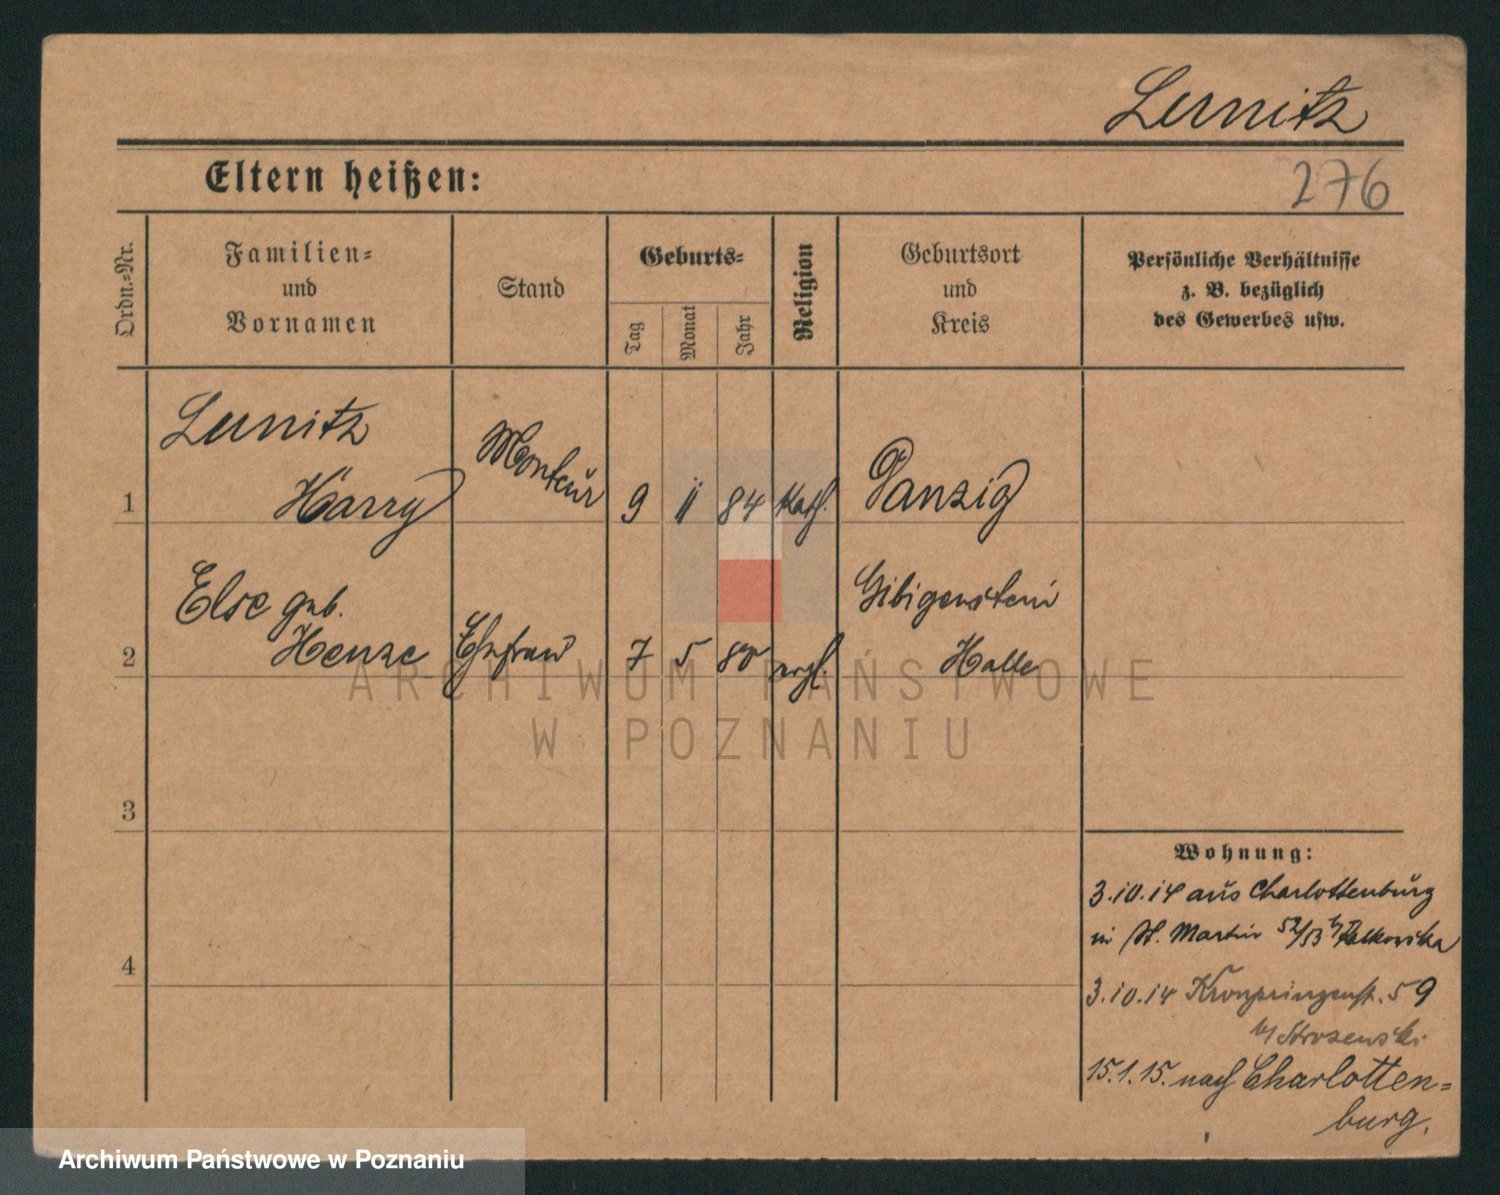 Lemnitz
276
Eltern heißen:
Ordn.-Nr.
Familien-
und
Vornamen
Stand
Geburts-
Tag
Monat
Jahr
Religion
Geburtsort
und
Kreis
Persönliche Verhältnisse
z. B. bezüglich
des Gewerbes usw.
Harry
Monteur
1
9
11
84
Kath.
Danzig
Else geb.
Henze
Ehefrau
2
7
5
80
evgl.
Gibigenstein
Halle
3
4
Wohnung:
3.10.14 aus Charlottenburg
in St. Martin 52/53 b/
3.10.14 Kronprinzenst. 59
b/
15.1.15. nach Charlotten=
burg.
ARCHIWUM PAŃSTWOWE
W POZNANIU
Archiwum Państwowe w Poznaniu